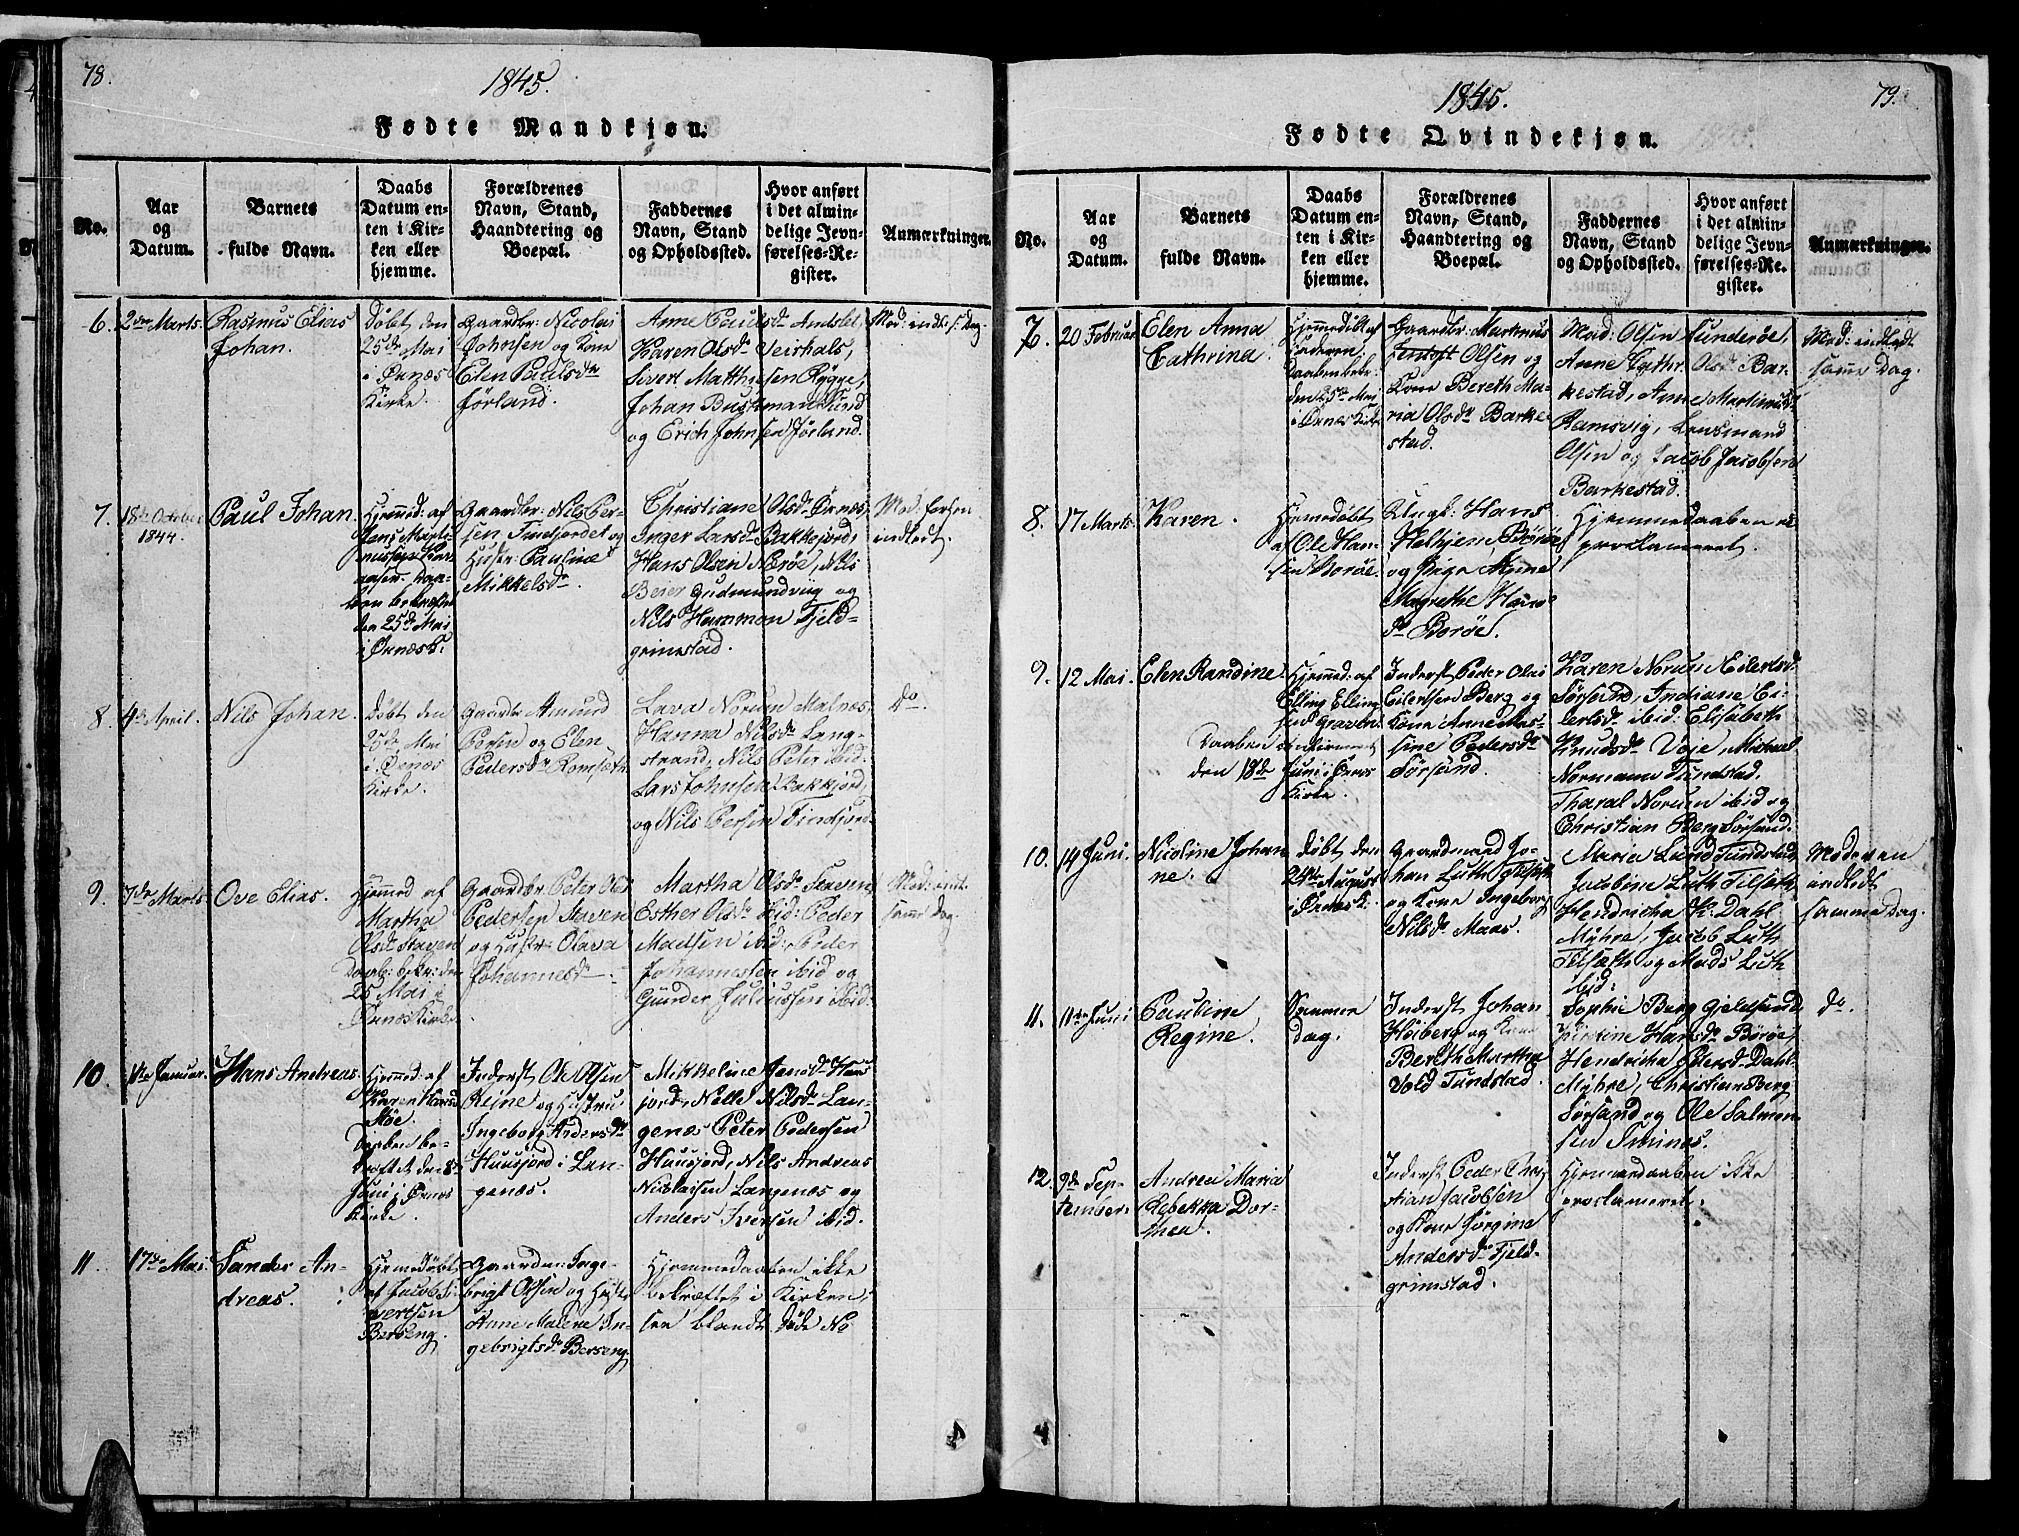 78.
1845.
Fødte Mandkjøn.
No.
Aar
og
Datum.
Barnets
fulde Navn.
Daabs
Datum en-
ten i Kir-
ken eller
hjemme.
Forældrenes
Navn, Stand,
Haandtering og
Boepæl.
Faddernes
Navn, Stand
og Opholdssted.
Hvor anført
i det almin-
delige Jevn-
førelses-Re-
gister.
Anmærkninger.
6.
2den Marts.
Rasmus Elias
Johan.
Døbt den
25de Mai
i Øenæs
Kirke.
Gaardbr: Nicolai
Johnsen og Kone
Elen Paulsdr
Førland.
Anne Paulsdr
Karen Olsdr Veirhals,
Sivert Matthisen Rygge,
Johan Buschmann Lund
og Erich Johnsen Førland.
Mod: indl: s: Dag
7.
18de October
1844.
Paul Johan.
Hjemmed: af
den 25de Mai
i Øenæs K:
Gaardbr: Nils Per-
sen Tindfjordet og
Hustr: Pauline
Mikkelsdr.
Christiane Olsdr Øenæs,
Inger Larsdr Bakkejord,
Hans Olsen Nærøe, Nils
Beier Gudmundvig og
Nils Hammon Fjeld-
grimstad.
Mod: forhen
indledt.
8.
4de April.
Nils Johan.
Døbt den
25de Mai
i Øenæs
Kirke.
Gaardbr Amund
Persen og Elen
Pedersdr Romsøth.
Lava Norum Malnæs
Hanna Nilsdr Lang-
strand, Nils Peter ibid:
Lars Johnsen Bakkjord,
og Nils Persen Tindfjord.
Do.
9.
7de Marts
Ove Elias.
Hjemmed af
Martha
Olsdr Staven
Daab: bekr: den
25 Mai i
Øenæs Kirke
Gaardbr Peter Olai
Pedersen Staven
og Hustr: Olava
Johannesdr.
Martha Olsdr Staven,
Esther Olsdr ibid: Peder
Madsen ibid: Peder
Johannessen ibid og
Gunder Juliussen ibid.
Mod: indl.
samme Dag.
10.
Januar.
Hans Andreas
Hjemmed: af
Karen Hansdr
Støe.
Daaben be-
kræftet den 8de
Juni i Øenæs
Kirke.
Inderst Ole Olsen
Reine og Hustru
Ingeborg Andersdr
Huusjord i Lan-
genæs.
Mikkeline Jensdr Huus
jord, Nelle Nilsdr Lan-
genæs Peter Pedersen
Huusjord, Nils Andreas
Nicolaisen Langenæs og
Anders Iversen ibid.
11
17de Mai
Sander An-
dreas.
Hjemedøbt
af Jacob Si-
vertsen
Berseng.
Gaardm: Inge-
brigt Olsen og Hustr
Anne Malene In-
gebrigtsdr Berseng
Hjemmedaaben ikke
bekræftet i Kirken,
see blandt Døde No
79.
1845.
Fødte Qvindekjøn.
No.
Aar
og
Datum.
Barnets
fulde Navn.
Daabs
Datum en-
ten i Kir-
ken eller
hjemme.
Forældrenes
Navn, Stand,
Haandtering og
Boepæl.
Faddernes
Navn, Stand
og Opholdssted.
Hvor anført
i det almin-
delige Jevn-
førelses-Re-
gister.
Anmærkninger.
7.
20 Februar
Elen Anna
Cathrina.
Hjemmedøbt af
Faderen,
Daaben bekr.
den 25de Mai
i Øenes Kirke
Gaardbr: Martinus
Olsen og
Kone Bereth Ma-
ria Olsdr Barke-
stad.
Mad: Olsen Sunderøe,
Anne Cathr. Olsdr Bar-
kestad, Anne Martinusdr
Ramsvig, Lensmand
Olsen og Jacob Jacobsen
Barkestad.
Mod: indledt
samme Dag.
8.
17 Marts
Karen.
Hjemedøbt
af Ole Han-
sen Borøe.
Ungk: Hans
Helhjem Børøe
og Pige Anne
Magrethe Hans-
dr Borøe.
Hjemmedaaben ei
proclameret.
9.
12 Mai.
Elen Randine.
Hjemmed: af
Elling Elling-
sen Graven
Daaben confirmeret
den 18de Juni i Øenes
Kirke.
Inderst Peder Olai
Eilertsen Berg og
Kone Anne Mas-
sine Pedersdr
Sørsand.
Karen Norum Eilertsdr
Sørsand, Indiane Ei-
lertsdr ibid: Elisabeth
Knudsdr Voje Michael
Normann Tundstad,
Tharal Norum ibid og
Christian Berg Sørsand.
10.
14 Juni.
Nicoline Johan
ne.
Døbt den
24de August
i Øenæs K:
Gaardmand Jo-
han Luth Tilseth
og Kone Ingeborg
Nilsdr Maas.
Maria Lund Tundstad,
Jacobine Luth Tilsæth
Hendricha K. Dahl
Myhre, Jacob Luth
Tilsæth og Mads Luth
ibid:
Moderen
indledt
samme Dag.
11.
11te Juni
Pauline
Regine.
Samme
Dag.
Inderst Johan
Høiberg og Kone
Bereth Martha
Vold Tundstad.
Sophie Berg Gjeldsund
Hansdr Børøe,
Hendricha Persdr Dahl
Myhre, Christian Berg
Sørsand og Ole Salmon-
sen Frinæs.
Do.
12.
9de Sep-
tember
Andrea Maria
Rebekka Dor-
thea.
Inderst Peder Chri-
stian Jacobsen
og Kone Jørgine
Andersdr Fjeld-
grimstad.
Hjemmedaaben ikke
proclameret.